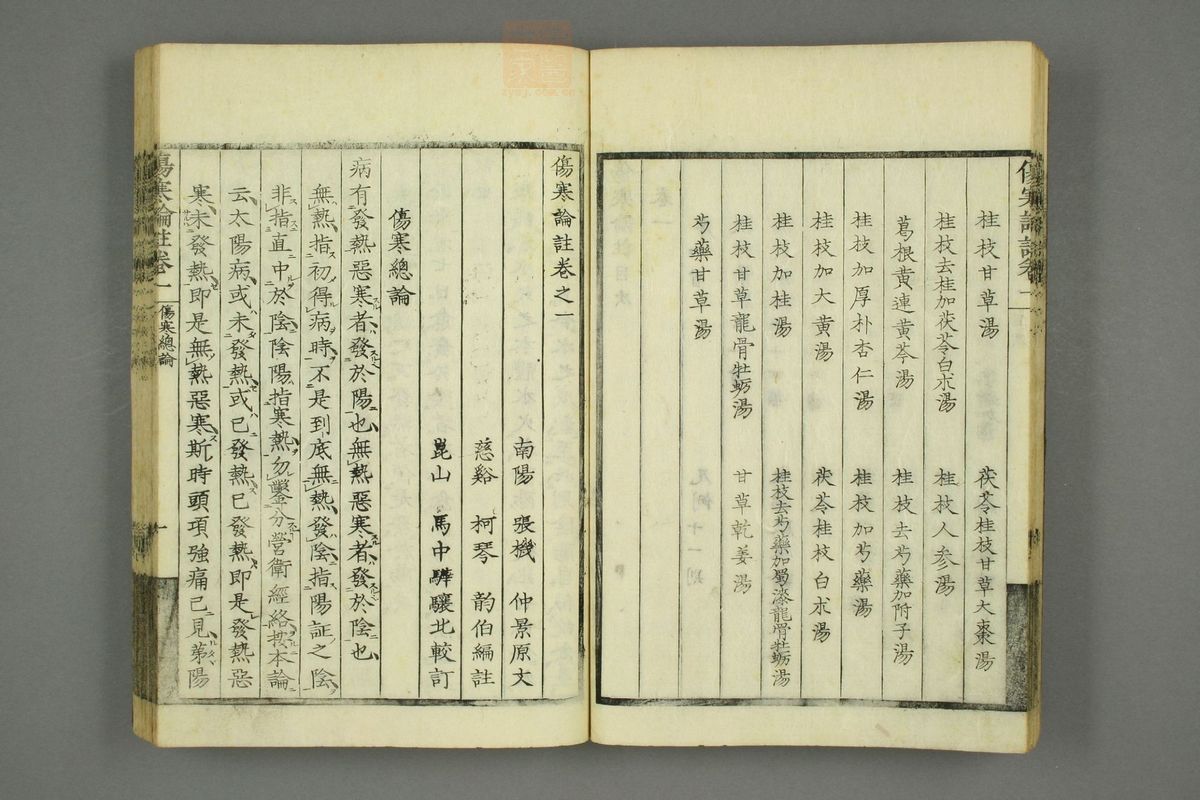 桂枝甘草湯
茯苓桂枝甘草大棗湯
桂枝去桂加茯苓白朮湯
桂枝人参湯
葛根黄連黄芩湯
桂枝去芍藥加附子湯
桂枝加厚朴杏仁湯
桂枝加芍藥湯
桂枝加大黄湯
茯苓桂枝白朮湯
桂枝加桂湯
桂枝去芍藥加蜀漆龍骨牡蛎湯
桂枝甘草龍骨牡蛎湯
甘草乾姜湯
芍藥甘草湯
傷寒論註卷之一
南陽 張機 仲景原文
慈谿 柯琴 韵伯編註
崑山 馬中驊驤北較訂
傷寒總論
病有發熱惡寒者發於陽也無熱惡寒者發於陰也
無熱指初得病時不是到底無熱發陰指陽証之陰
非指直中於陰陰陽指寒熱勿鑿分營衛經絡按本論
云太陽病或未發熱或已發熱已發熱即是發熱惡
寒未發熱即是無熱惡寒斯時頭項強痛已見第陽
傷寒論註卷一 傷寒總論 一